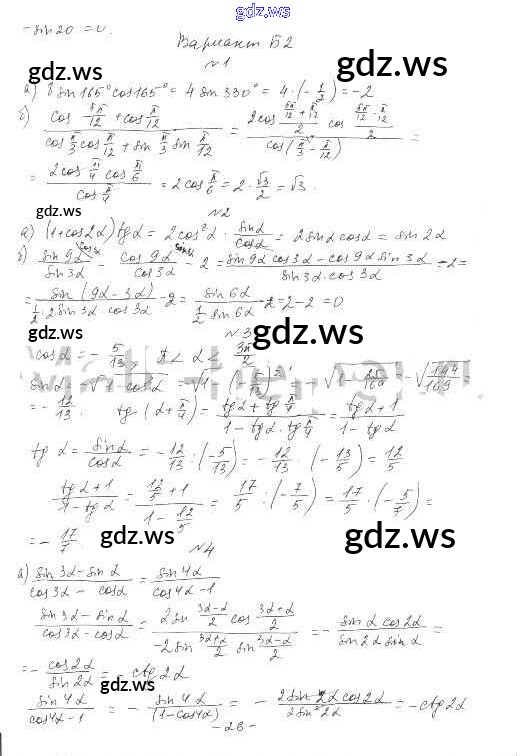 gdz.ws
-sin20 = 0.
Вариант Б2
№1
а) 8 sin165° cos165° = 4 sin 330° = 4·(-1/2) = -2
б) (cos 5π/12 + cos π/12)/(cos π/3 cos π/12 + sin π/3 sin π/12) = (2cos (5π/12 + π/12)/2 cos (5π/12 - π/12)/2)/(cos(π/3 - π/12)) =
= (2cos π/4 cos π/6)/(cos π/4) = 2 cos π/6 = 2·√3/2 = √3.
№2
а) (1+cos2α)tgα = 2cos²α · sinα/cosα = 2sinα cosα = sin 2α
б) sin9α/sin3α - cos9α/cos3α - 2 = (sin9α cos3α - cos9α sin3α)/(sin3α·cos3α) - 2 =
= sin(9α-3α)/(1/2·2 sin3α·cos3α) - 2 = sin6α/(1/2 sin6α) - 2 = 2-2 = 0
№3
cosα = -5/13 π < α < 3π/2
sinα = -√(1-cos²α) = -√(1-(-5/13)²) = -√(1-25/169) = -√(144/169) =
= -12/13. tg(α+π/4) = (tgα + tg π/4)/(1 - tgα·tg π/4) = (tgα+1)/(1-tgα)
tgα = sinα/cosα = -12/13 : (-5/13) = -12/13 · (-13/5) = 12/5
(tgα+1)/(1-tgα) = (12/5+1)/(1-12/5) = 17/5 : (-7/5) = 17/5 · (-5/7) =
= -17/7.
№4
а) (sin3α-sinα)/(cos3α-cosα) = sin4α/(cos4α-1)
(sin3α-sinα)/(cos3α-cosα) = (2sin (3α-α)/2 cos (3α+α)/2)/(-2sin (3α+α)/2 sin (3α-α)/2) = -(sinα cos2α)/(sin2α sinα) =
= -cos2α/sin2α = -ctg2α
sin4α/(cos4α-1) = -sin4α/(1-cos4α) = -(2sin2α cos2α)/(2sin²2α) = -ctg2α
-28-
gdz.ws
gdz.ws
gdz.ws
gdz.ws
gdz.ws
gdz.ws
gdz.ws
gdz.ws
gdz.ws
gdz.ws